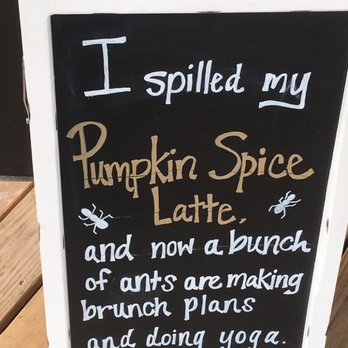 I spilled my
Pumpkin Spice
Latte.
and now a bunch
of ants are making
brunch plans
and doing yoga.